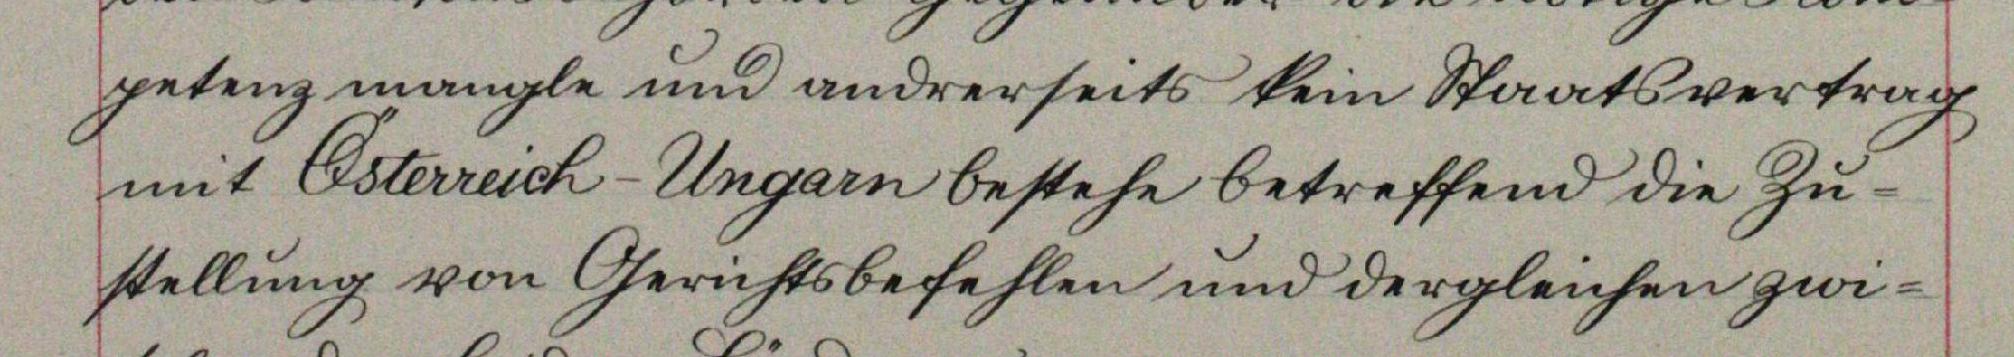 petenz mangle und andrerseits kein Staatsvertrag
mit Österreich-Ungarn bestehe betreffend die Zu-
stellung von Gerichtsbefehlen und dergleichen zwi-